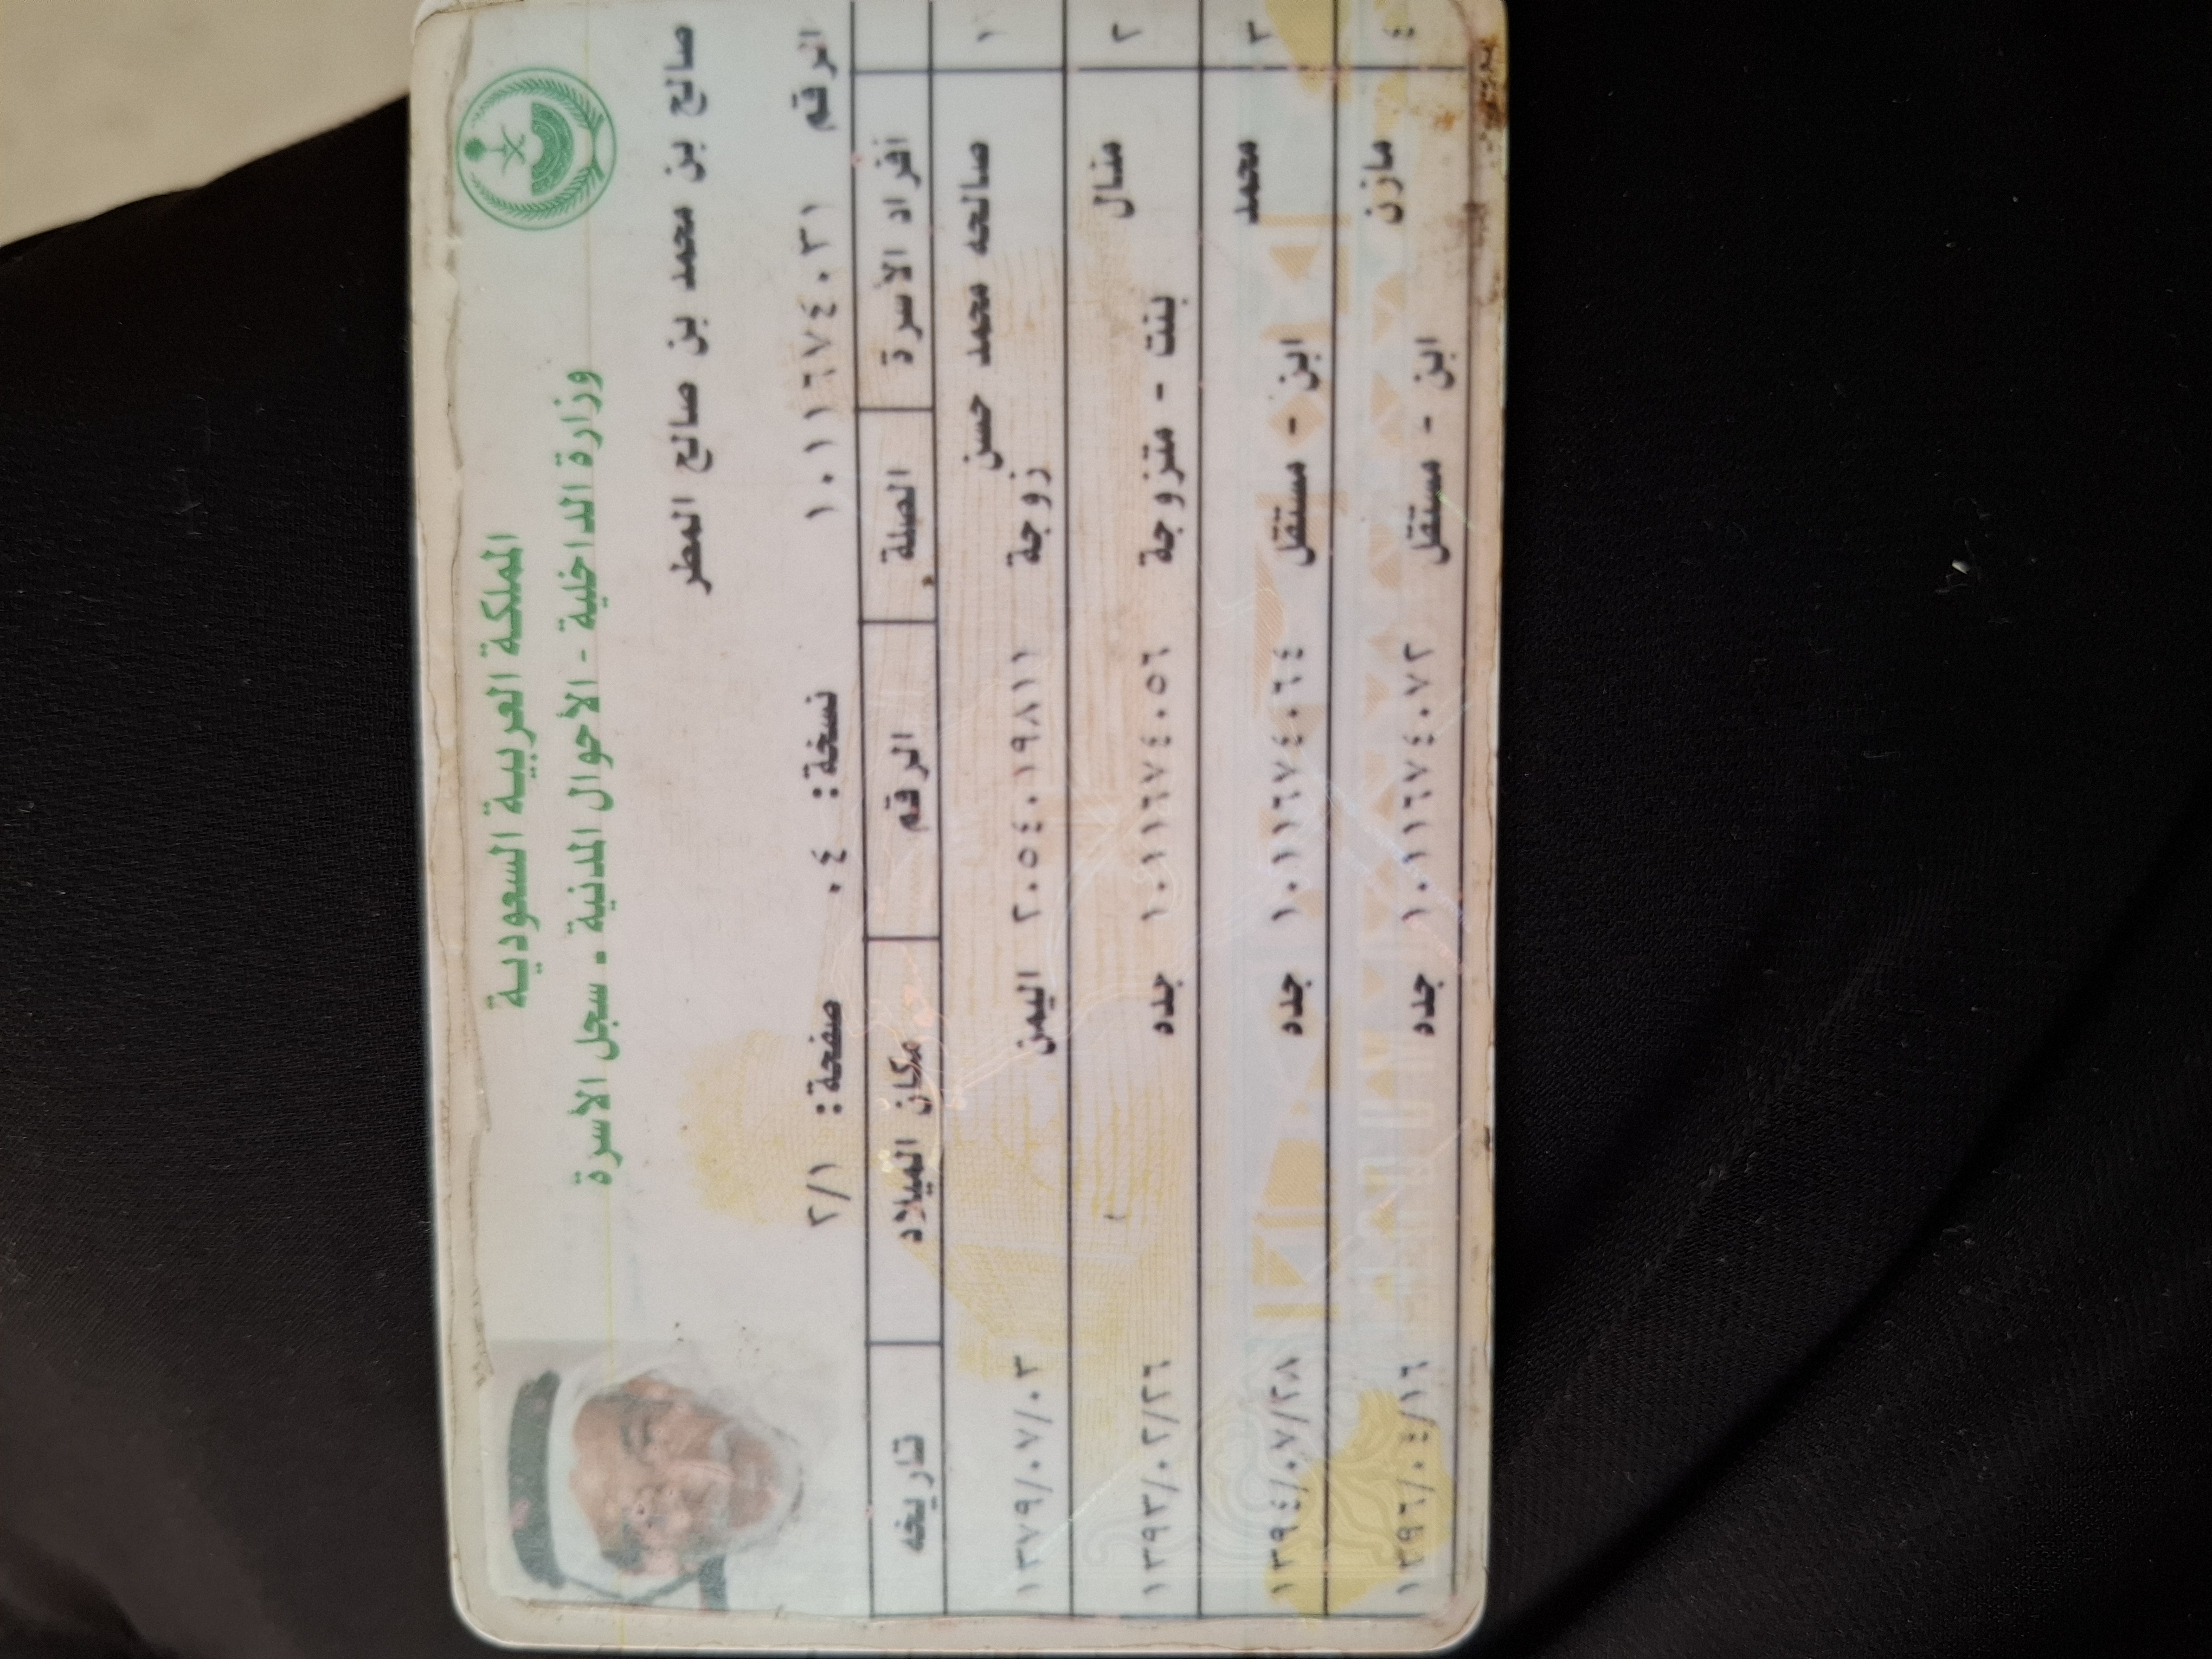 المملكة العربية السعودية
وزارة الداخلية - الأحوال المدنية - سجل الأسرة
صالح بن محمد بن صالح المطر
الرقم ١٠١١٦٧٤٠٣١ نسخة: ٠٤ صفحة: ٢/١
افراد الاسرة الصلة الرقم مكان الميلاد تاريخه
١ صالحه محمد حسن
زوجة ٢٠٥٤٠١٩٨١١ اليمن ١٣٧٩/٠٧/٠٣
٢ منال
بنت - متزوجة ١٠١١٦٧٤٠٥٦ جده ١٣٩٣/٠٢/٢٦
٣ محمد
ابن - مستقل ١٠١١٦٧٤٠٦٤ جده ١٣٩٤/٠٧/٢٨
٤ مازن
ابن - مستقل ١٠١١٦٧٤٠٧٢ جده ١٣٩٦/٠٤/١٦